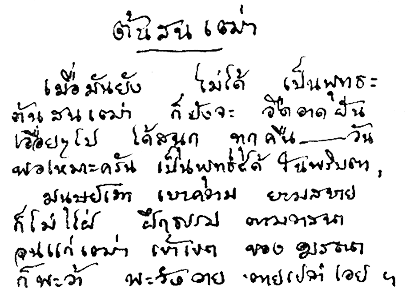 ต้นสนเฒ่า
เมื่อมันยัง ไม่ได้ เป็นพุทธะ
ต้นสนเฒ่า ก็ยังจะ อืดอาด ยืน
เรื่อยๆไป ได้สนุก ทุกคืน วัน
พอเหมาะครัน เป็นพุทธะได้ ในพริบตา,
มนุษย์เรา เอาความ ยามสบาย
ก็ไม่ใฝ่ ฝึกธรรม ตามวาสนา
จนแก่เฒ่า เข้าเขต ของ มรณา
ก็พะว้า พะวัง วาย ตายเปล่า เอย ฯ